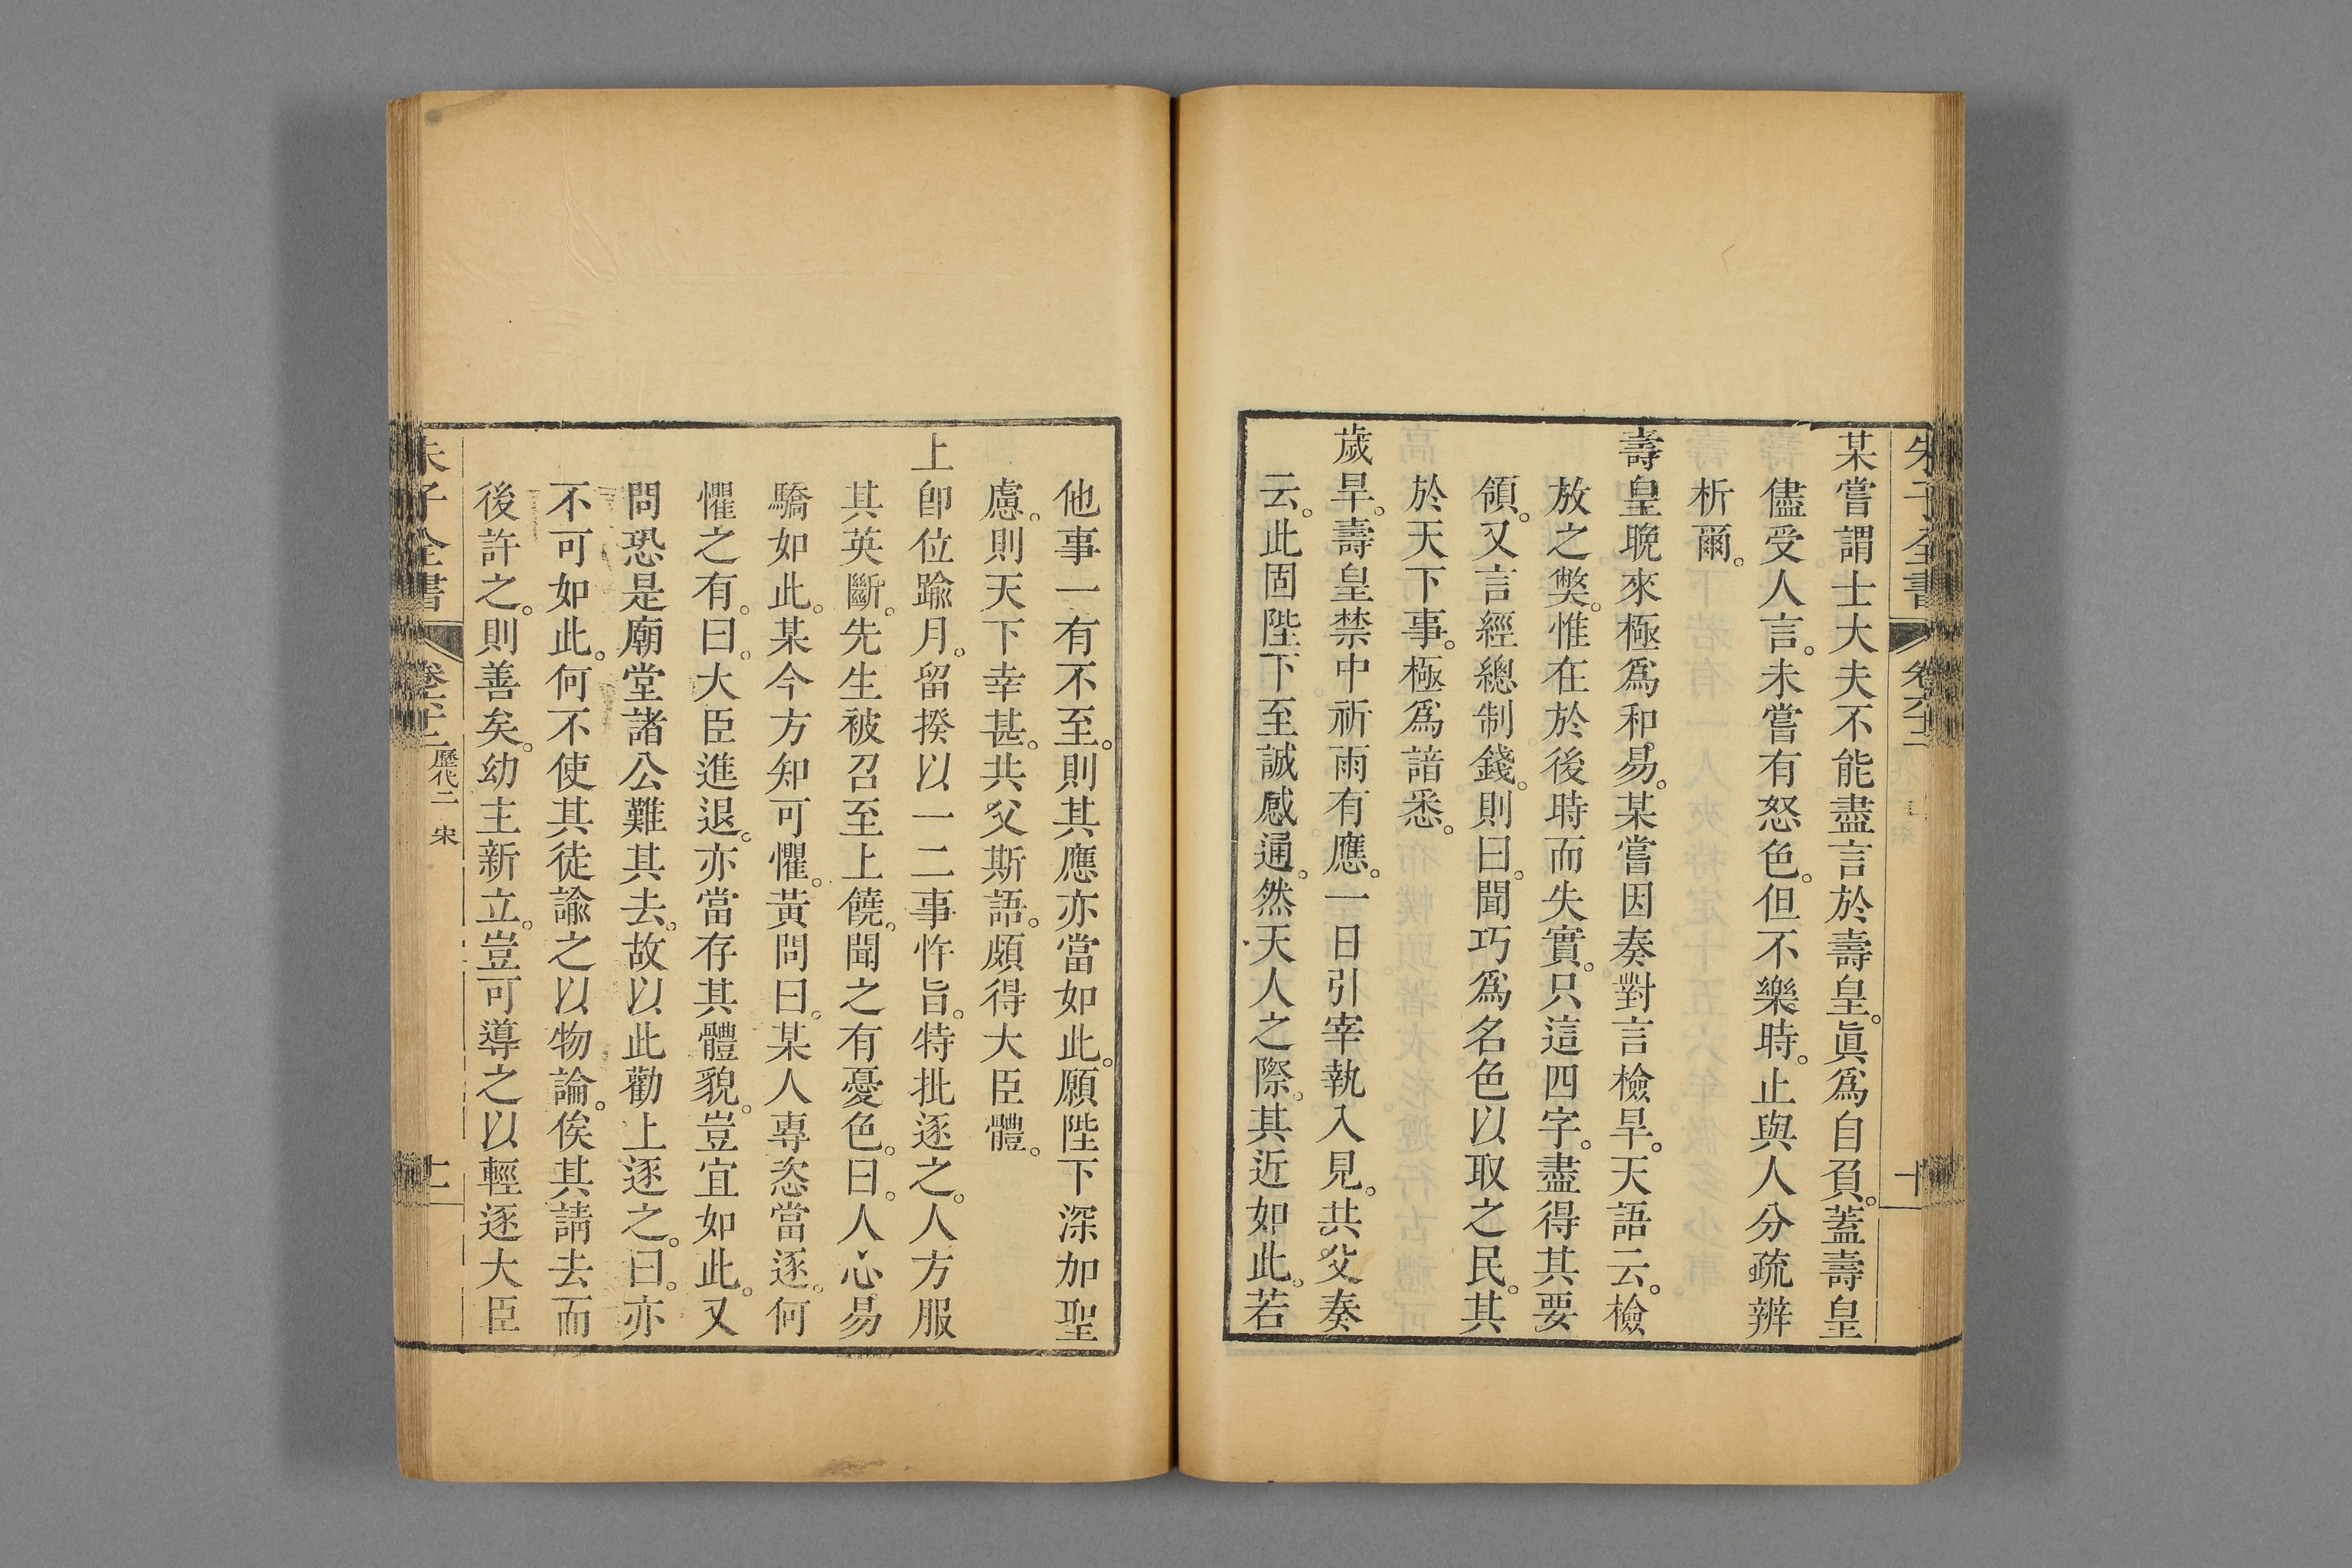 某嘗謂士大夫不能盡言於壽皇。眞爲自負。蓋壽皇
儘受人言。未嘗有怒色。但不樂時。止與人分疏辨
析爾。
壽皇晚來極爲和易。某嘗因奏對言檢旱。天語云。檢
放之獘。惟在於後時而失實。只這四字。盡得其要
領。又言經總制錢。則曰。聞巧爲名色以取之民。其
於天下事。極爲諳悉。
歲旱。壽皇禁中祈雨有應。一日引宰執入見。共父奏
云。此固陛下至誠感通。然天人之際。其近如此。若
他事一有不至。則其應亦當如此。願陛下深加聖
慮。則天下幸甚。共父斯語。頗得大臣體。
上卽位踰月。留揆以一二事忤旨。特批逐之。人方服
其英斷。先生被召至上饒。聞之有憂色。曰。人心易
驕如此。某今方知可懼。黃問曰。某人專恣當逐。何
懼之有。曰。大臣進退。亦當存其體貌。豈宜如此。又
問恐是廟堂諸公難其去。故以此勸上逐之。曰。亦
不可如此。何不使其徒諭之以物論。俟其請去而
後許之。則善矣。幼主新立。豈可導之以輕逐大臣
朱子全書 歷代二 宋